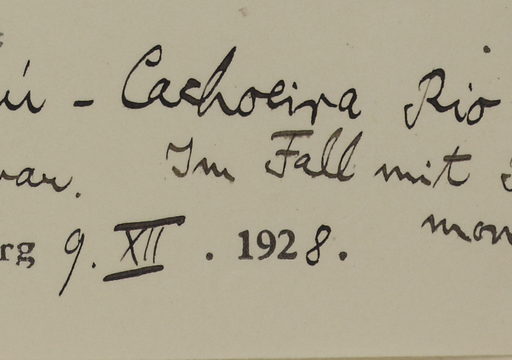 ú - Cachoeira Rio
var. Im Fall mit
mon
rg 9. XII . 1928.